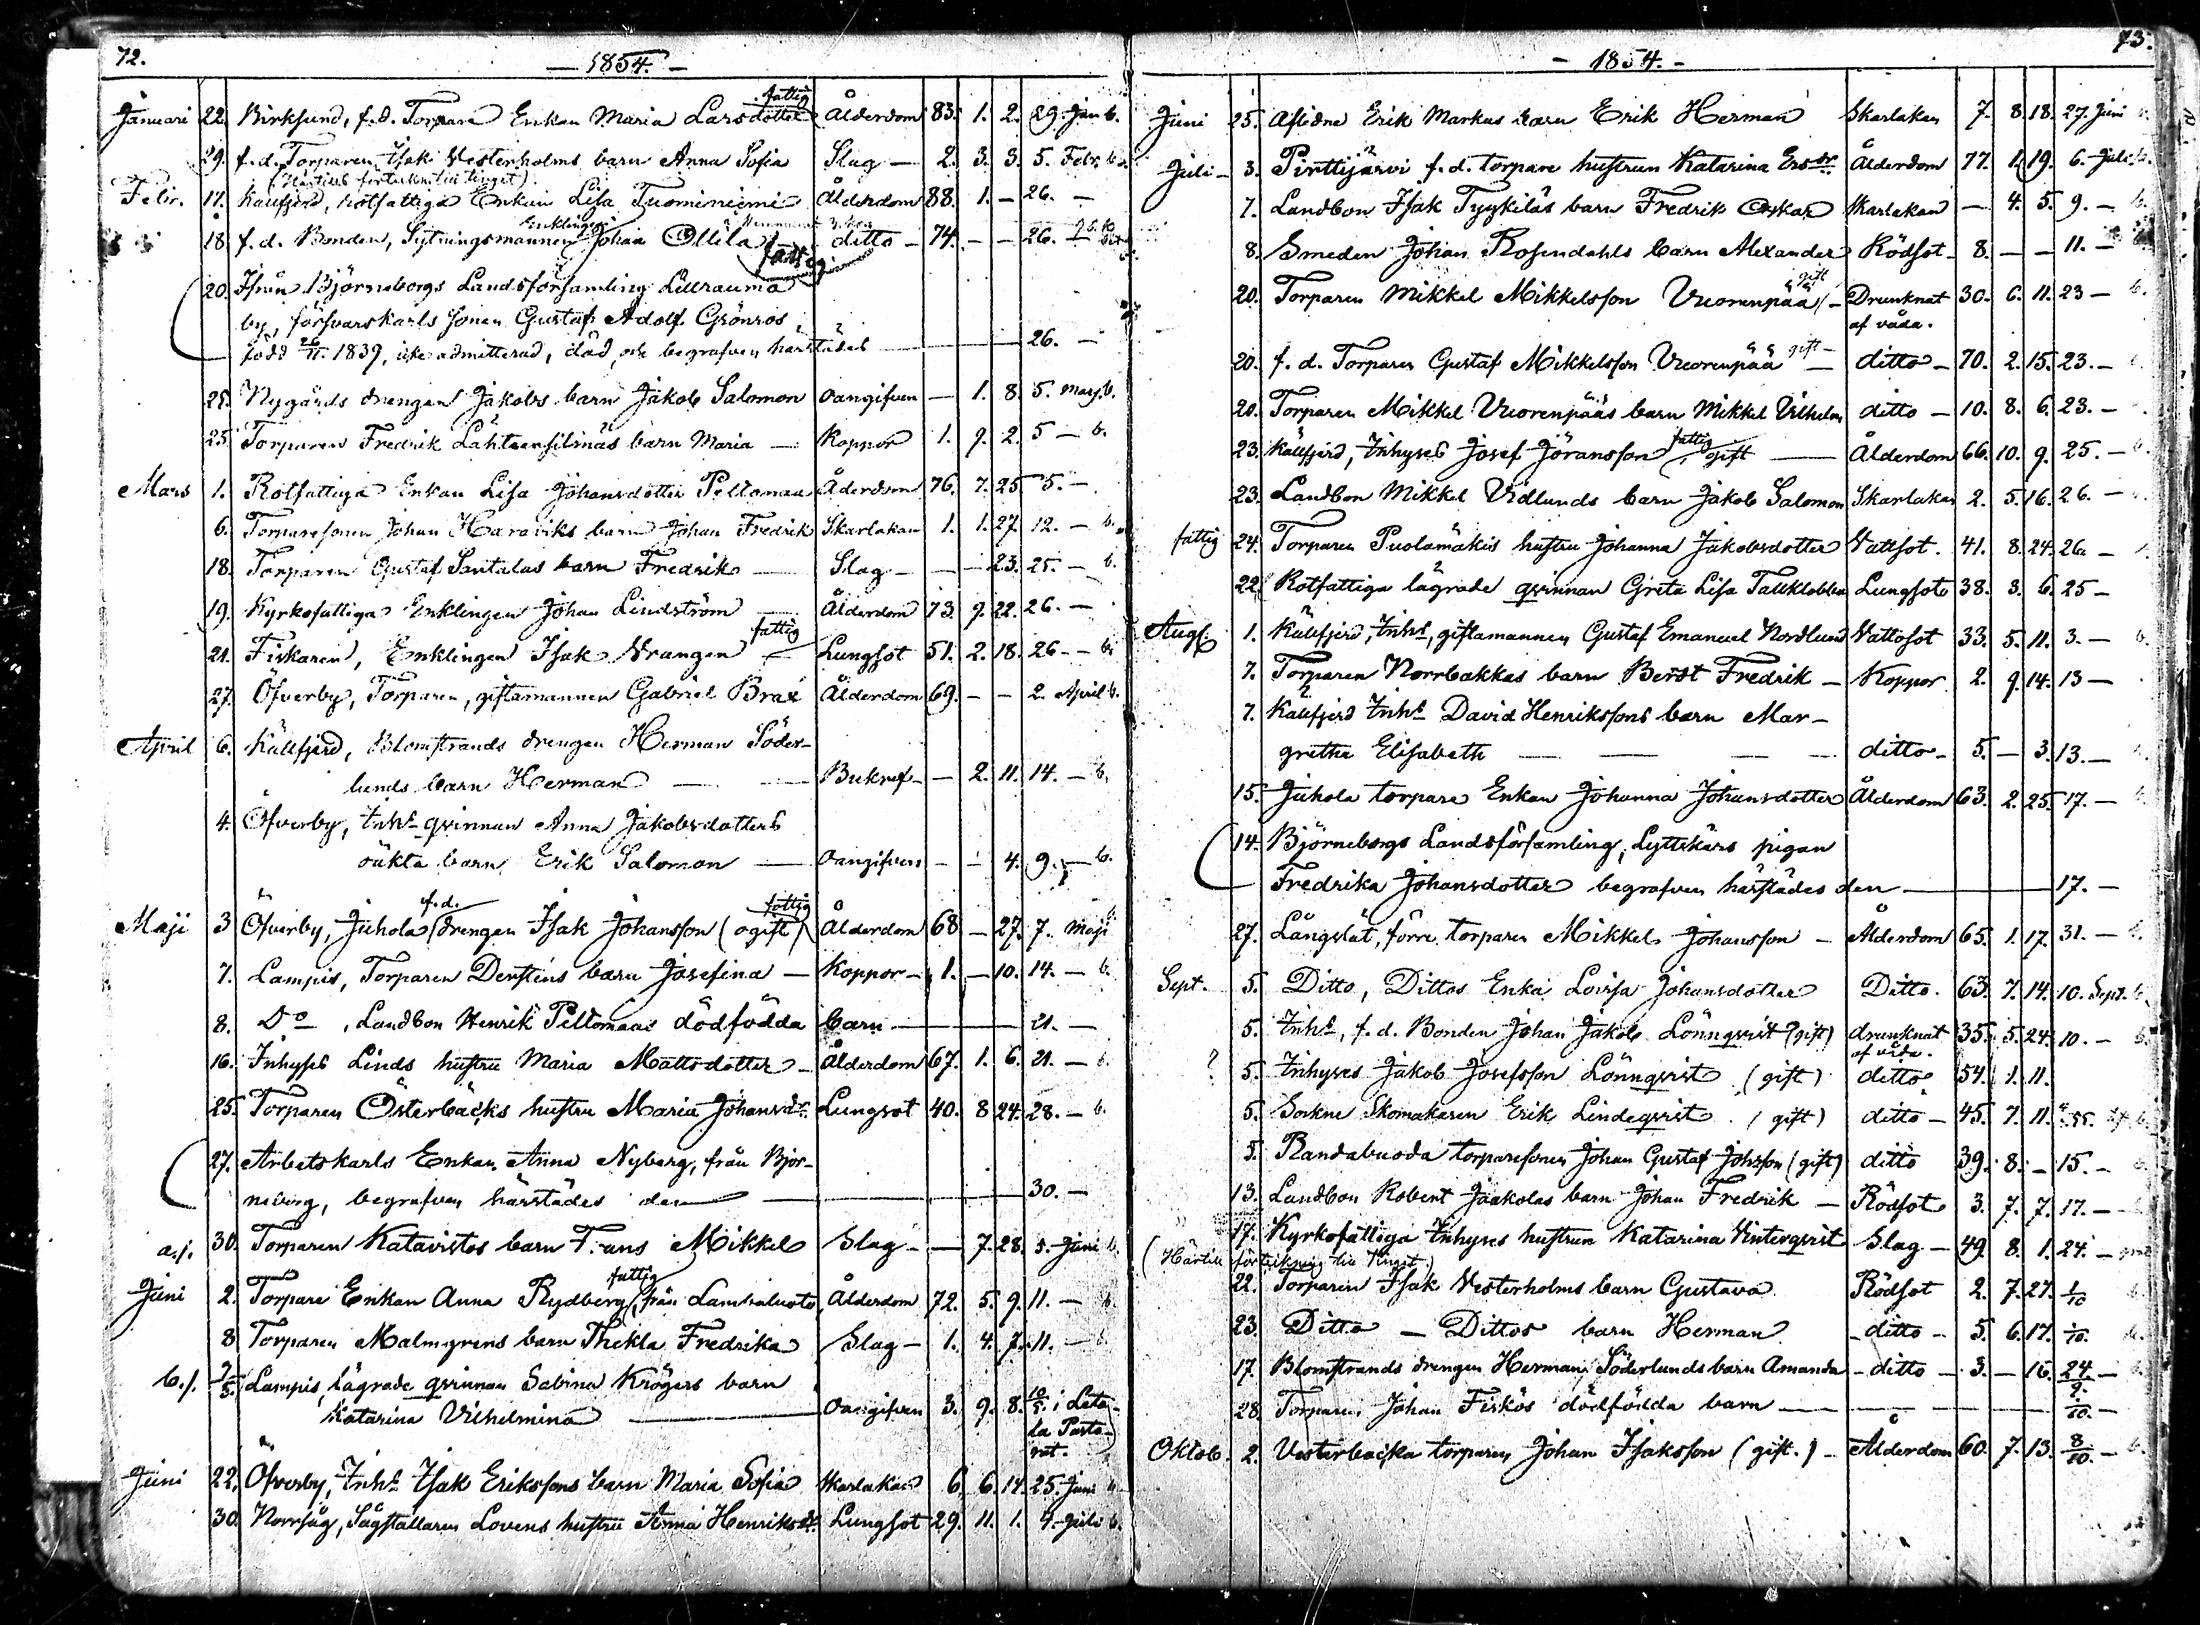 72.
— 1854. —
Januari 22. Birksund, f.d. Torpare Enkan Maria Larsdotter fattig Ålderdom 83. 1. 2. 29. Jan. b.
29. f.d. Torparen Isak Vesterholms barn Anna Sofia Slag — 2. 3. 3. 5. Febr. b.
(Härtill förteckn. till tinget).
Febr. 17. Källfjerd, rotfattiga Enkan Lisa Tuominiemi Ålderdom 88. 1. — 26. —
18. f.d. Bonden, Sytningsmannen Enklingen Johan Ollila fattig ditto — 74. — — 26.
20. Ifrån Björneborgs Landsförsamling Lillrauma
by, försvarskarls sonen Gustaf Adolf Grönros
född 26/11. 1839, icke admitterad, död, och begrafven härstädes — 26. —
25. Nygårds drengen Jakobs barn Jakob Salomon oangifven — 1. 8. 5. Mars. b.
25. Torparen Fredrik Lähteensilmäs barn Maria — Koppor 1. 9. 2. 5 — b.
Mars 1. Rotfattiga Enkan Lisa Johansdotter Peltomaa Ålderdom 76. 7. 25 5. —
6. Torparesonen Johan Haraviks barn Johan Fredrik Skarlakan 1. 1. 27. 12. — b.
18. Torparen Gustaf Santalas barn Fredrik — Slag — — — 23. 25. — b.
19. Kyrkofattiga Enklingen Johan Lindström — Ålderdom 73 9. 22. 26. —
21. Fiskaren, Enklingen Isak Vrangen fattig Lungsot 51. 2. 18. 26 — b.
27. Öfverby, Torparen, giftamannen Gabriel Brax Ålderdom 69. — — 2. April b.
April 6. Källfjerd, Blomstrands drengen Herman Söder-
lunds barn Herman — Bukref — — 2. 11. 14. — b.
4. Öfverby, Inhs qvinnan Anna Jakobsdotters
oäkta barn Erik Salomon — oangifven — — 4. 9. — b.
Maji 3 Öfverby, Juhola f.d. drengen Isak Johansson (ogift) fattig Ålderdom 68 — 27. 7. Maji b.
7. Lampis, Torparen Derstins barn Josefina — Koppor — 1. — 10. 14. — b.
8. Do, Landbon Henrik Peltomaas dödfödda barn — 21. —
16. Inhyses Linds hustru Maria Mattsdotter — Ålderdom 67. 1. 6. 21. — b.
25. Torparen Österbäcks hustru Maria Johansdr. Lungsot 40. 8 24. 28. — b.
27. Arbetskarls Enkan Anna Nyberg, från Björ-
neborg, begrafven härstädes den — 30. —
a.). 30. Torparen Katavistos barn Frans Mikkel Slag — — 7. 28. 5. Juni b.
Juni 2. Torpare Enkan Anna Rydberg fattig, från Lambaluoto, Ålderdom 72. 5. 9. 11. — b.
8 Torparen Malmgrens barn Thekla Fredrika Slag — 1. 4. 7. 11. — b.
b.). 7/5. Lampis, lägrade qvinnan Sabina Krögers barn
Katarina Vilhelmina — Oangifven 3. 9. 8. 10/5. i Leta-
la Pasto-
rat.
Juni 22. Öfverby, Inhs Isak Erikssons barn Maria Sofia Skarlakan 6. 6. 14. 25. Juni b.
30. Norrsåg, Sågställaren Lovens hustru Anna Henriksdr. Lungsot 29. 11. 1. 4. Juli b.
73.
— 1854. —
Juni 25. Aflidne Erik Markus barn Erik Herman Skarlakan 7. 8. 18. 27. Juni
Juli — 3. Pinttijärvi f.d. torpare hustrun Katarina Ersdr. Ålderdom 77. 1. 19. 6. Juli b.
7. Landbon Isak Tyykiläs barn Fredrik Oskar Skarlakan — 4. 5. 9. — b.
8. Smeden Johan Rosendahls barn Alexander Rödsot — 8. — — 11. —
20. Torparen Mikkel Mikkelsson Vuorenpää gift — Drunknat 30. 6. 11. 23 — b.
af våda.
20. f.d. Torparen Gustaf Mikkelsson Vuorenpää gift — ditto — 70. 2. 15. 23. —
20. Torparen Mikkel Vuorenpääs barn Mikkel Vilhelm ditto — 10. 8. 6. 23. —
23. Källfjerd, Inhyses Josef Jöransson fattig, gift — Ålderdom 66. 10. 9. 25. — b.
23. Landbon Mikkel Vidlunds barn Jakob Salomon Skarlakan 2. 5. 16. 26. —
fattig 24. Torparen Puolamäkis hustru Johanna Jakobsdotter Vattsot. 41. 8. 24. 26. —
22. Rotfattiga lägrade qvinnan Greta Lisa Tallklobben Lungsot 38. 3. 6. 25 —
Aug. 1. Källfjerd, Inhs, giftamannen Gustaf Emanuel Nordlund Vattosot 33. 5. 11. 3. — b.
7. Torparen Norrbakkas barn Berndt Fredrik — Koppor 2. 9. 14. 13 —
7. Källfjerd Inhs David Henrikssons barn Mar-
grethe Elisabeth — ditto — 5. — 3. 13. —
15. Juhola torpare Enkan Johanna Johansdotter Ålderdom 63. 2. 25. 17. — b.
14. Björneborgs Landsförsamling, Lyttskärs pigan
Fredrika Johansdotter begrafven härstädes den — 17. —
27. Långslät, förre torparen Mikkel Johansson — Ålderdom 65. 1. 17. 31. — b.
Sept. 5. Ditto, Dittos Enka Lovisa Johansdotter Ditto. 63. 7. 14. 10. Sept. b.
5. Inhs, f.d. Bonden Johan Jakob Lönnqvist (gift) drunknat 35. 5. 24. 10. — b.
af våda.
? 5. Inhyses Jakob Josefsson Lönnqvist (gift) ditto 54. 1. 11.
5. Sockne Skomakaren Erik Lindeqvist (gift) ditto — 45. 7. 11.
5. Randabuoda torparesonen Johan Gustaf Johsson (gift) ditto 39. 8. — 15. —
13. Landbon Robert Jaakolas barn Johan Fredrik — Rödsot 3. 7. 7. 17. —
17. Kyrkofattiga Inhyses hustrun Katarina Vinterqvist Slag — 49 8. 1. 24. —
(Härtill förteckning till tinget.)
22. Torparen Isak Vesterholms barn Gustava Rödsot 2. 7. 27. 1/10
23. Ditto — Dittos barn Herman — ditto — 5. 6. 17. 1/10. b.
17. Blomstrands drengen Herman Söderlunds barn Amanda — ditto — 3. — 16. 24/9. —
28 Torparen Johan Fiskös dödfödda barn — 1/10. —
Oktob. 2. Vesterbacka torparen Johan Isaksson (gift.) — Ålderdom 60. 7. 13. 8/10. — b.